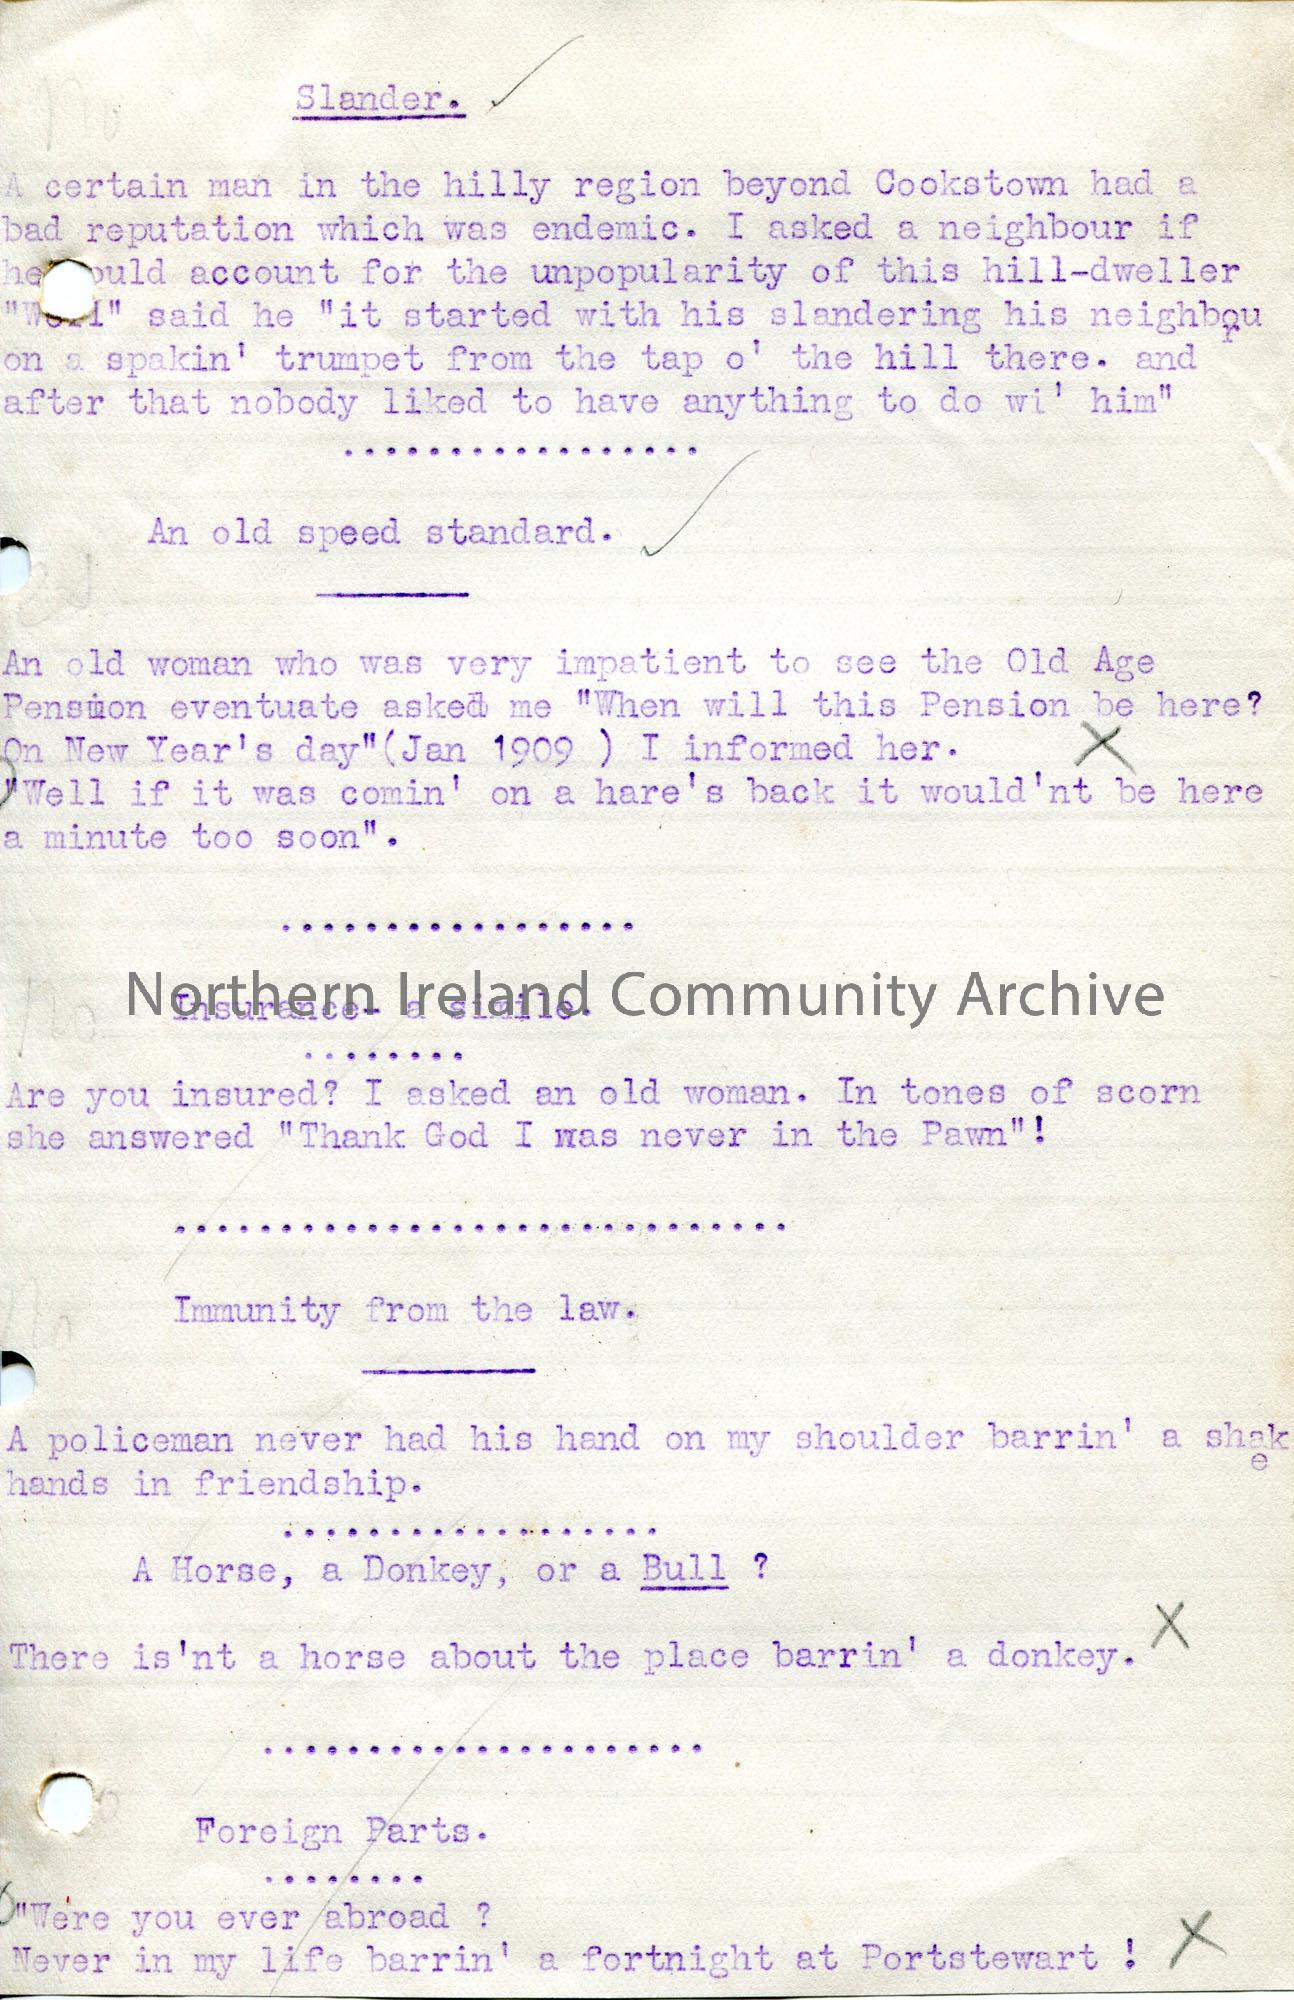 Slander.
A certain man in the hilly region beyond Cookstown had a
bad reputation which was endemic. I asked a neighbour if
he could account for the unpopularity of this hill-dweller
"Well" said he "it started with his slandering his neighbour
on a spakin' trumpet from the tap o' the hill there. and
after that nobody liked to have anything to do wi' him"
.................
An old speed standard.
An old woman who was very impatient to see the Old Age
Pension eventuate asked me "When will this Pension be here?
On New Year's day"(Jan 1909 ) I informed her.
"Well if it was comin' on a hare's back it would'nt be here
a minute too soon".
.................
Northern Ireland Community Archive
Insurance- a simile.
........
Are you insured? I asked an old woman. In tones of scorn
she answered "Thank God I was never in the Pawn"!
.............................
Immunity from the law.
A policeman never had his hand on my shoulder barrin' a shake
hands in friendship.
..................
A Horse, a Donkey, or a Bull ?
There is'nt a horse about the place barrin' a donkey.
.....................
Foreign Parts.
........
"Were you ever abroad ?
Never in my life barrin' a fortnight at Portstewart !